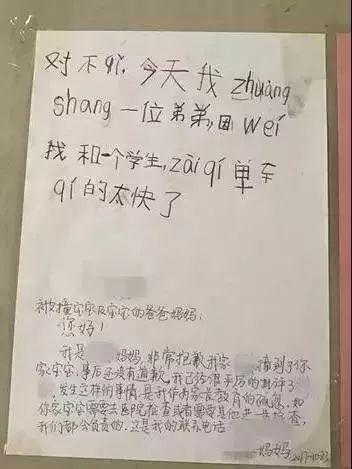 对不qǐ,今天我zhuàng
shang一位弟弟,因wèi
我和一个学生,zài qí单车
qí的太快了
被撞宝宝及宝宝的爸爸妈妈:
您好!
我是 妈妈,非常抱歉,我家 撞到了你
家宝宝,事后还没有道歉,我已经很严厉的批评了
,发生这样的事情,是我作为家长教育的疏忽,如
你家宝宝需要去医院检查或者需要其他进一步检查,
我们都会负责的,这是我的联系电话
妈妈